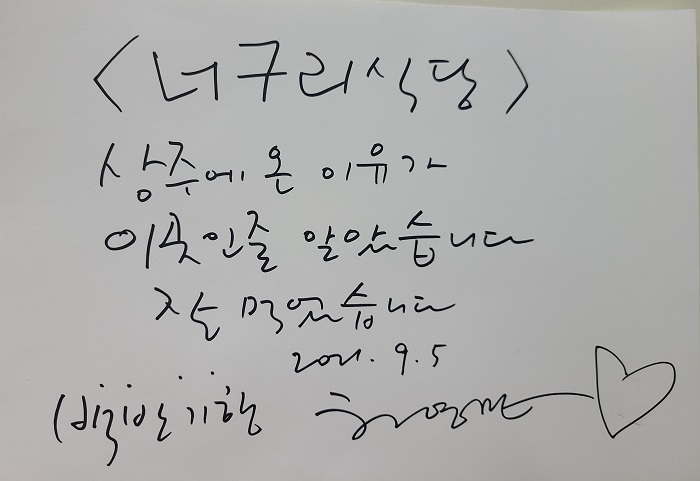 <너구리식당>
상주에 온 이유가
이곳인줄 알았습니다
잘 먹었습니다
2021. 9. 5
(백반기행 허영만